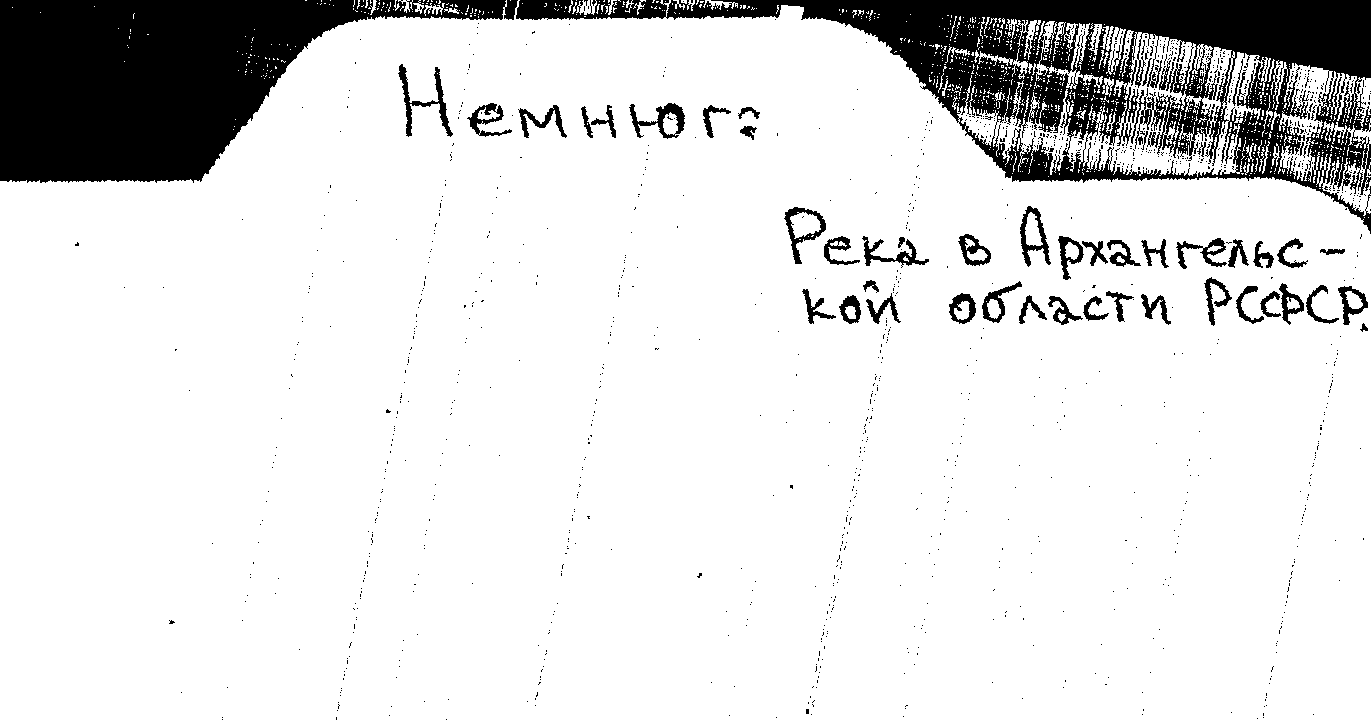 Немнюга
Река в Архангельс-
кой области РСФСР.